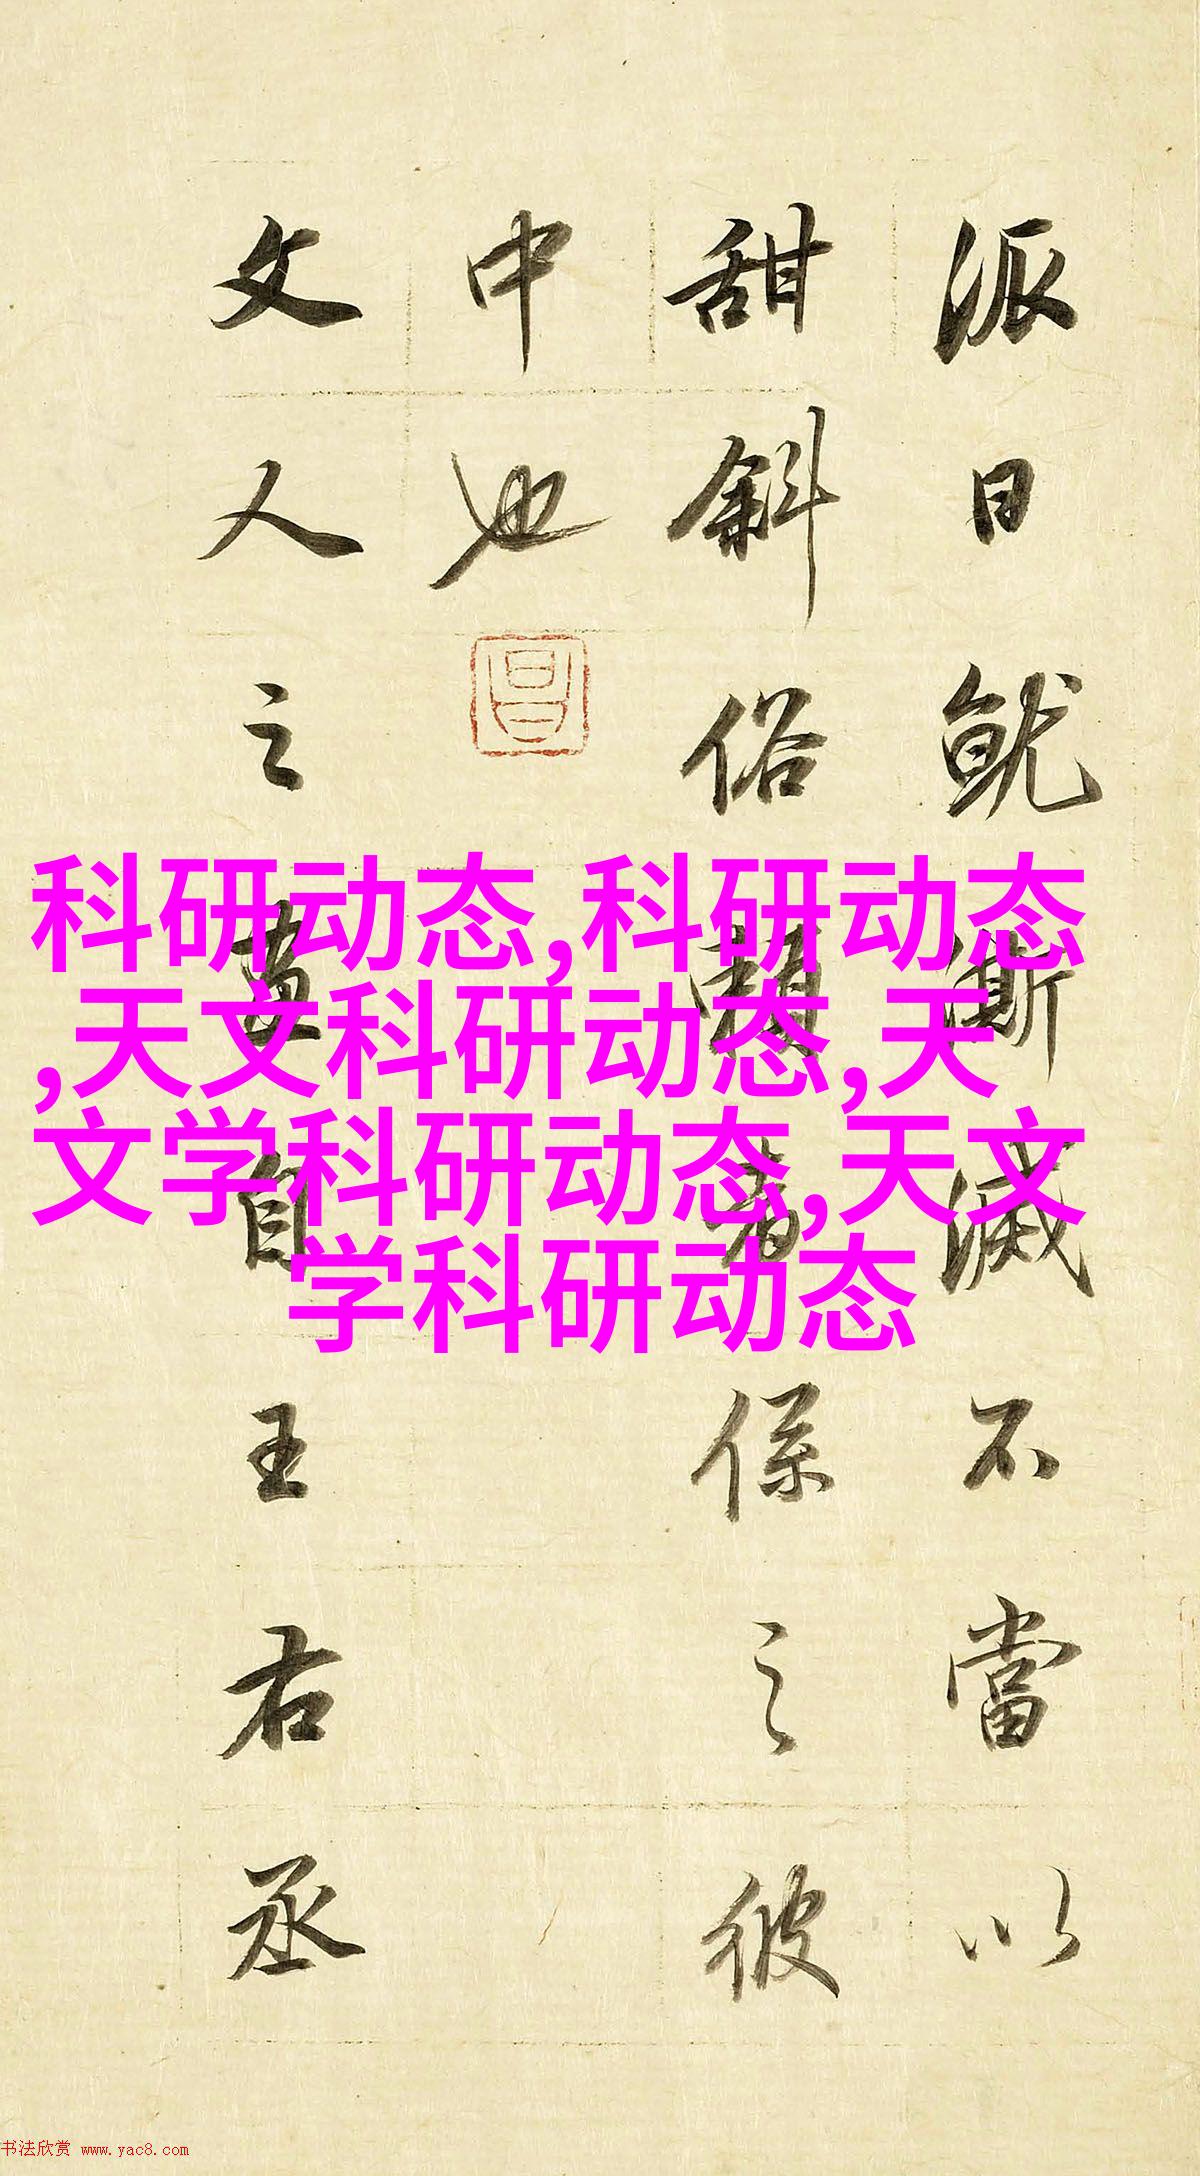 派日就澌滅不當以
甜斜俗賴者係之彼
中也
昌
文人之畫自王右丞
科研动态,科研动态
,天文科研动态,天
文学科研动态,天文
学科研动态
书法欣赏 www.yac8.com